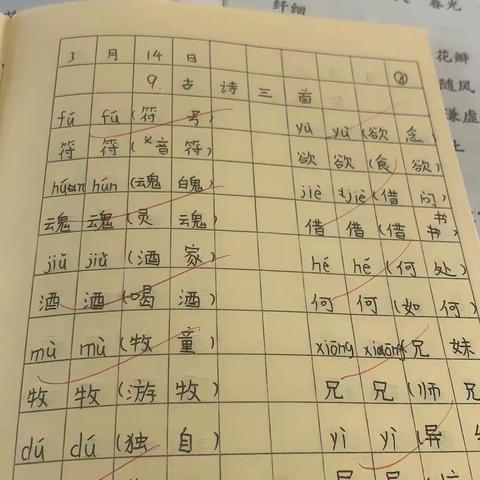 3 月 14 日
9. 古 诗 三 首
fú fú (符 号)
符 符 (音 符)
hún hún (魂 魄)
魂 魂 (灵 魂)
jiǔ jiǔ (酒 家)
酒 酒 (喝 酒)
mù mù (牧 童)
牧 牧 (游 牧)
dú dú (独 自)
yù yù (欲 念)
欲 欲 (食 欲)
jiè jiè (借 问)
借 借 (借 书)
hé hé (何 处)
何 何 (如 何)
xiōng xiōng (兄 妹
兄 兄 (师 兄
yì yì (异
纤细
春光
花瓣
随风
谦虚